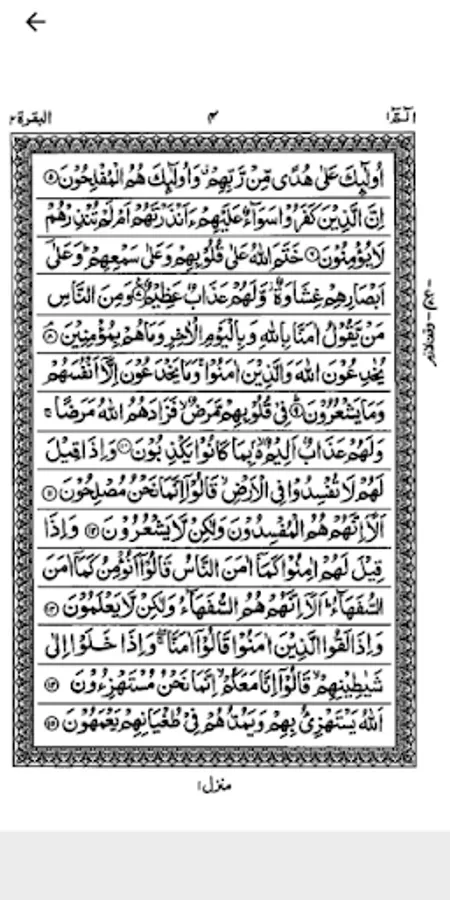 البقرة ٢ ٣ الٓمّٓ ١
اُولٰٓئِكَ عَلٰى هُدًى مِّنْ رَّبِّهِمْ ۙ وَاُولٰٓئِكَ هُمُ الْمُفْلِحُوْنَ ۝٥
اِنَّ الَّذِيْنَ كَفَرُوْا سَوَآءٌ عَلَيْهِمْ ءَاَنْذَرْتَهُمْ اَمْ لَمْ تُنْذِرْهُمْ
لَا يُؤْمِنُوْنَ ۝٦ خَتَمَ اللّٰهُ عَلٰى قُلُوْبِهِمْ وَعَلٰى سَمْعِهِمْ ؕ وَعَلٰٓى
اَبْصَارِهِمْ غِشَاوَةٌ ؗ وَّلَهُمْ عَذَابٌ عَظِيْمٌ ۝٧ وَمِنَ النَّاسِ
مَنْ يَّقُوْلُ اٰمَنَّا بِاللّٰهِ وَبِالْيَوْمِ الْاٰخِرِ وَمَا هُمْ بِمُؤْمِنِيْنَ ۝٨
يُخٰدِعُوْنَ اللّٰهَ وَالَّذِيْنَ اٰمَنُوْا ۚ وَمَا يَخْدَعُوْنَ اِلَّآ اَنْفُسَهُمْ
وَمَا يَشْعُرُوْنَ ۝٩ فِيْ قُلُوْبِهِمْ مَّرَضٌ ۙ فَزَادَهُمُ اللّٰهُ مَرَضًا ۚ
وَلَهُمْ عَذَابٌ اَلِيْمٌ ۢ ۙ بِمَا كَانُوْا يَكْذِبُوْنَ ۝١٠ وَاِذَا قِيْلَ
لَهُمْ لَا تُفْسِدُوْا فِي الْاَرْضِ ۙ قَالُوْٓا اِنَّمَا نَحْنُ مُصْلِحُوْنَ ۝١١
اَلَآ اِنَّهُمْ هُمُ الْمُفْسِدُوْنَ وَلٰكِنْ لَّا يَشْعُرُوْنَ ۝١٢ وَاِذَا
قِيْلَ لَهُمْ اٰمِنُوْا كَمَآ اٰمَنَ النَّاسُ قَالُوْٓا اَنُؤْمِنُ كَمَآ اٰمَنَ
السُّفَهَآءُ ؕ اَلَآ اِنَّهُمْ هُمُ السُّفَهَآءُ وَلٰكِنْ لَّا يَعْلَمُوْنَ ۝١٣
وَاِذَا لَقُوا الَّذِيْنَ اٰمَنُوْا قَالُوْٓا اٰمَنَّا ۖۚ وَاِذَا خَلَوْا اِلٰى
شَيٰطِيْنِهِمْ ۙ قَالُوْٓا اِنَّا مَعَكُمْ ۙ اِنَّمَا نَحْنُ مُسْتَهْزِءُوْنَ ۝١٤
اَللّٰهُ يَسْتَهْزِئُ بِهِمْ وَيَمُدُّهُمْ فِيْ طُغْيَانِهِمْ يَعْمَهُوْنَ ۝١٥
منزل ١